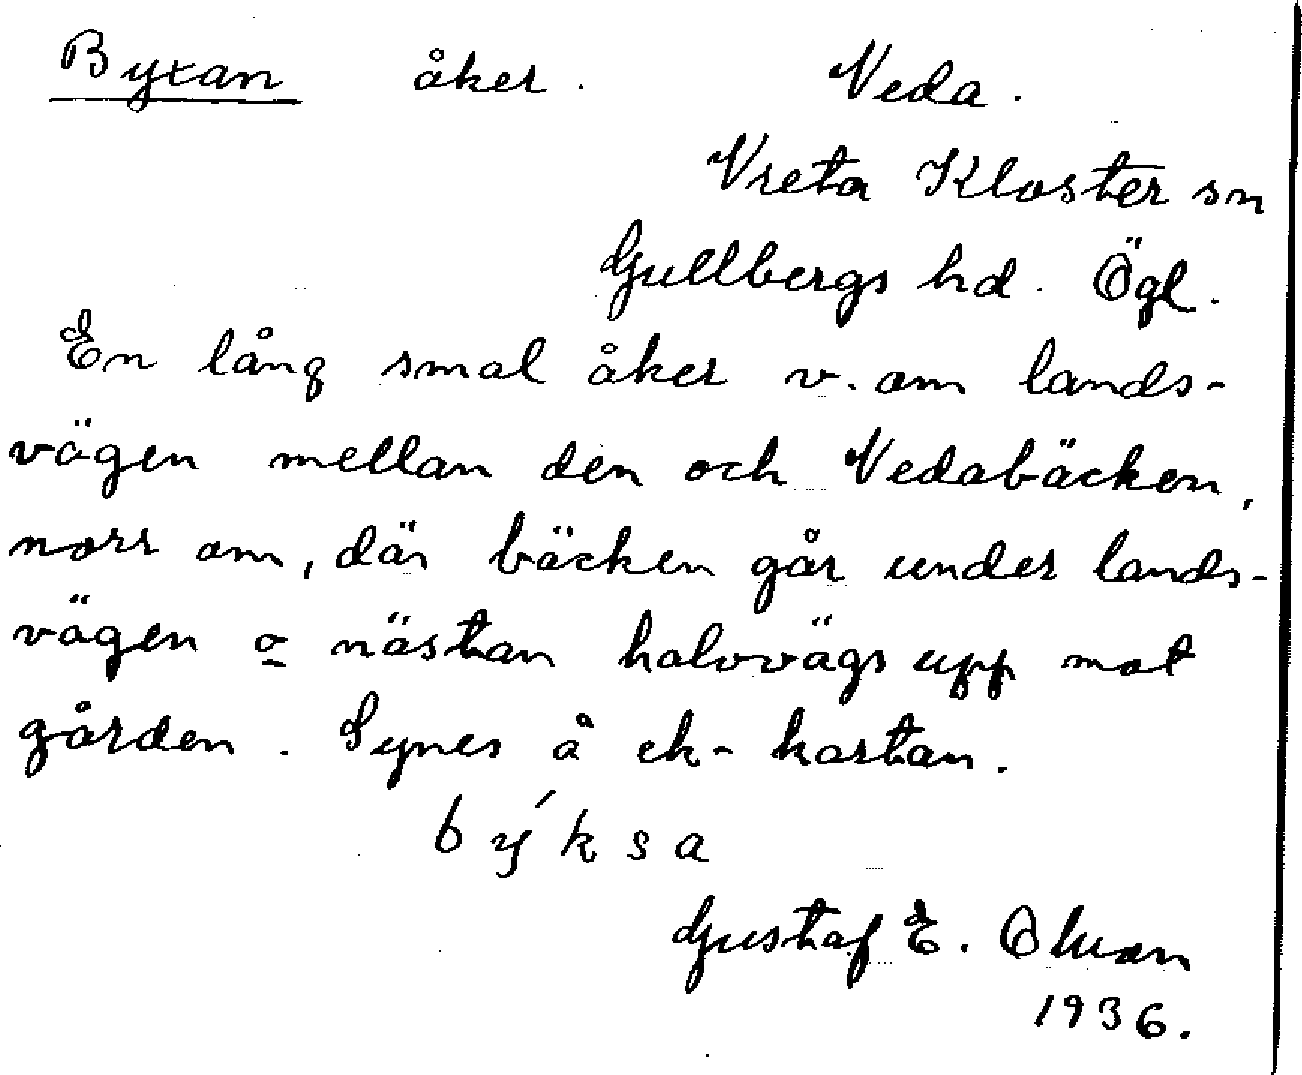 Byxan åker. Veda.
Vreta Kloster sn
Gullbergs hd. Ögl.
En lång smal åker v. om lands-
vägen mellan den och Vedabäcken,
norr om, där bäcken går under lands-
vägen o nästan halvvägs upp mot
gården. Synes å ek-kartan.
býksa
Gustaf E.
1936.